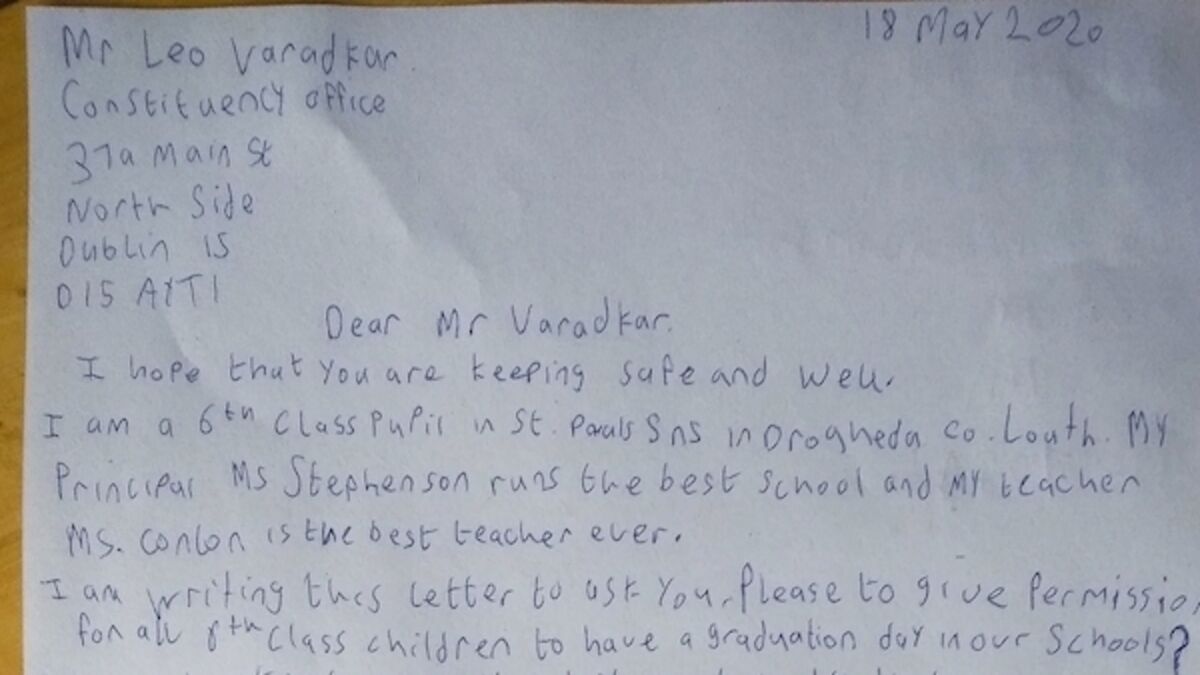 18 May 2020
Mr Leo Varadkar
Constituency office
37a Main St
North Side
Dublin 15
D15 AYT1
Dear Mr Varadkar.
I hope that you are keeping safe and well.
I am a 6th Class Pupil in St. Pauls Sns in Drogheda Co. Louth. My
Principal Ms Stephenson runs the best school and my teacher
Ms. Conlon is the best teacher ever.
I am writing this letter to ask you, Please to give Permission
for all 6th Class children to have a graduation day in our Schools?